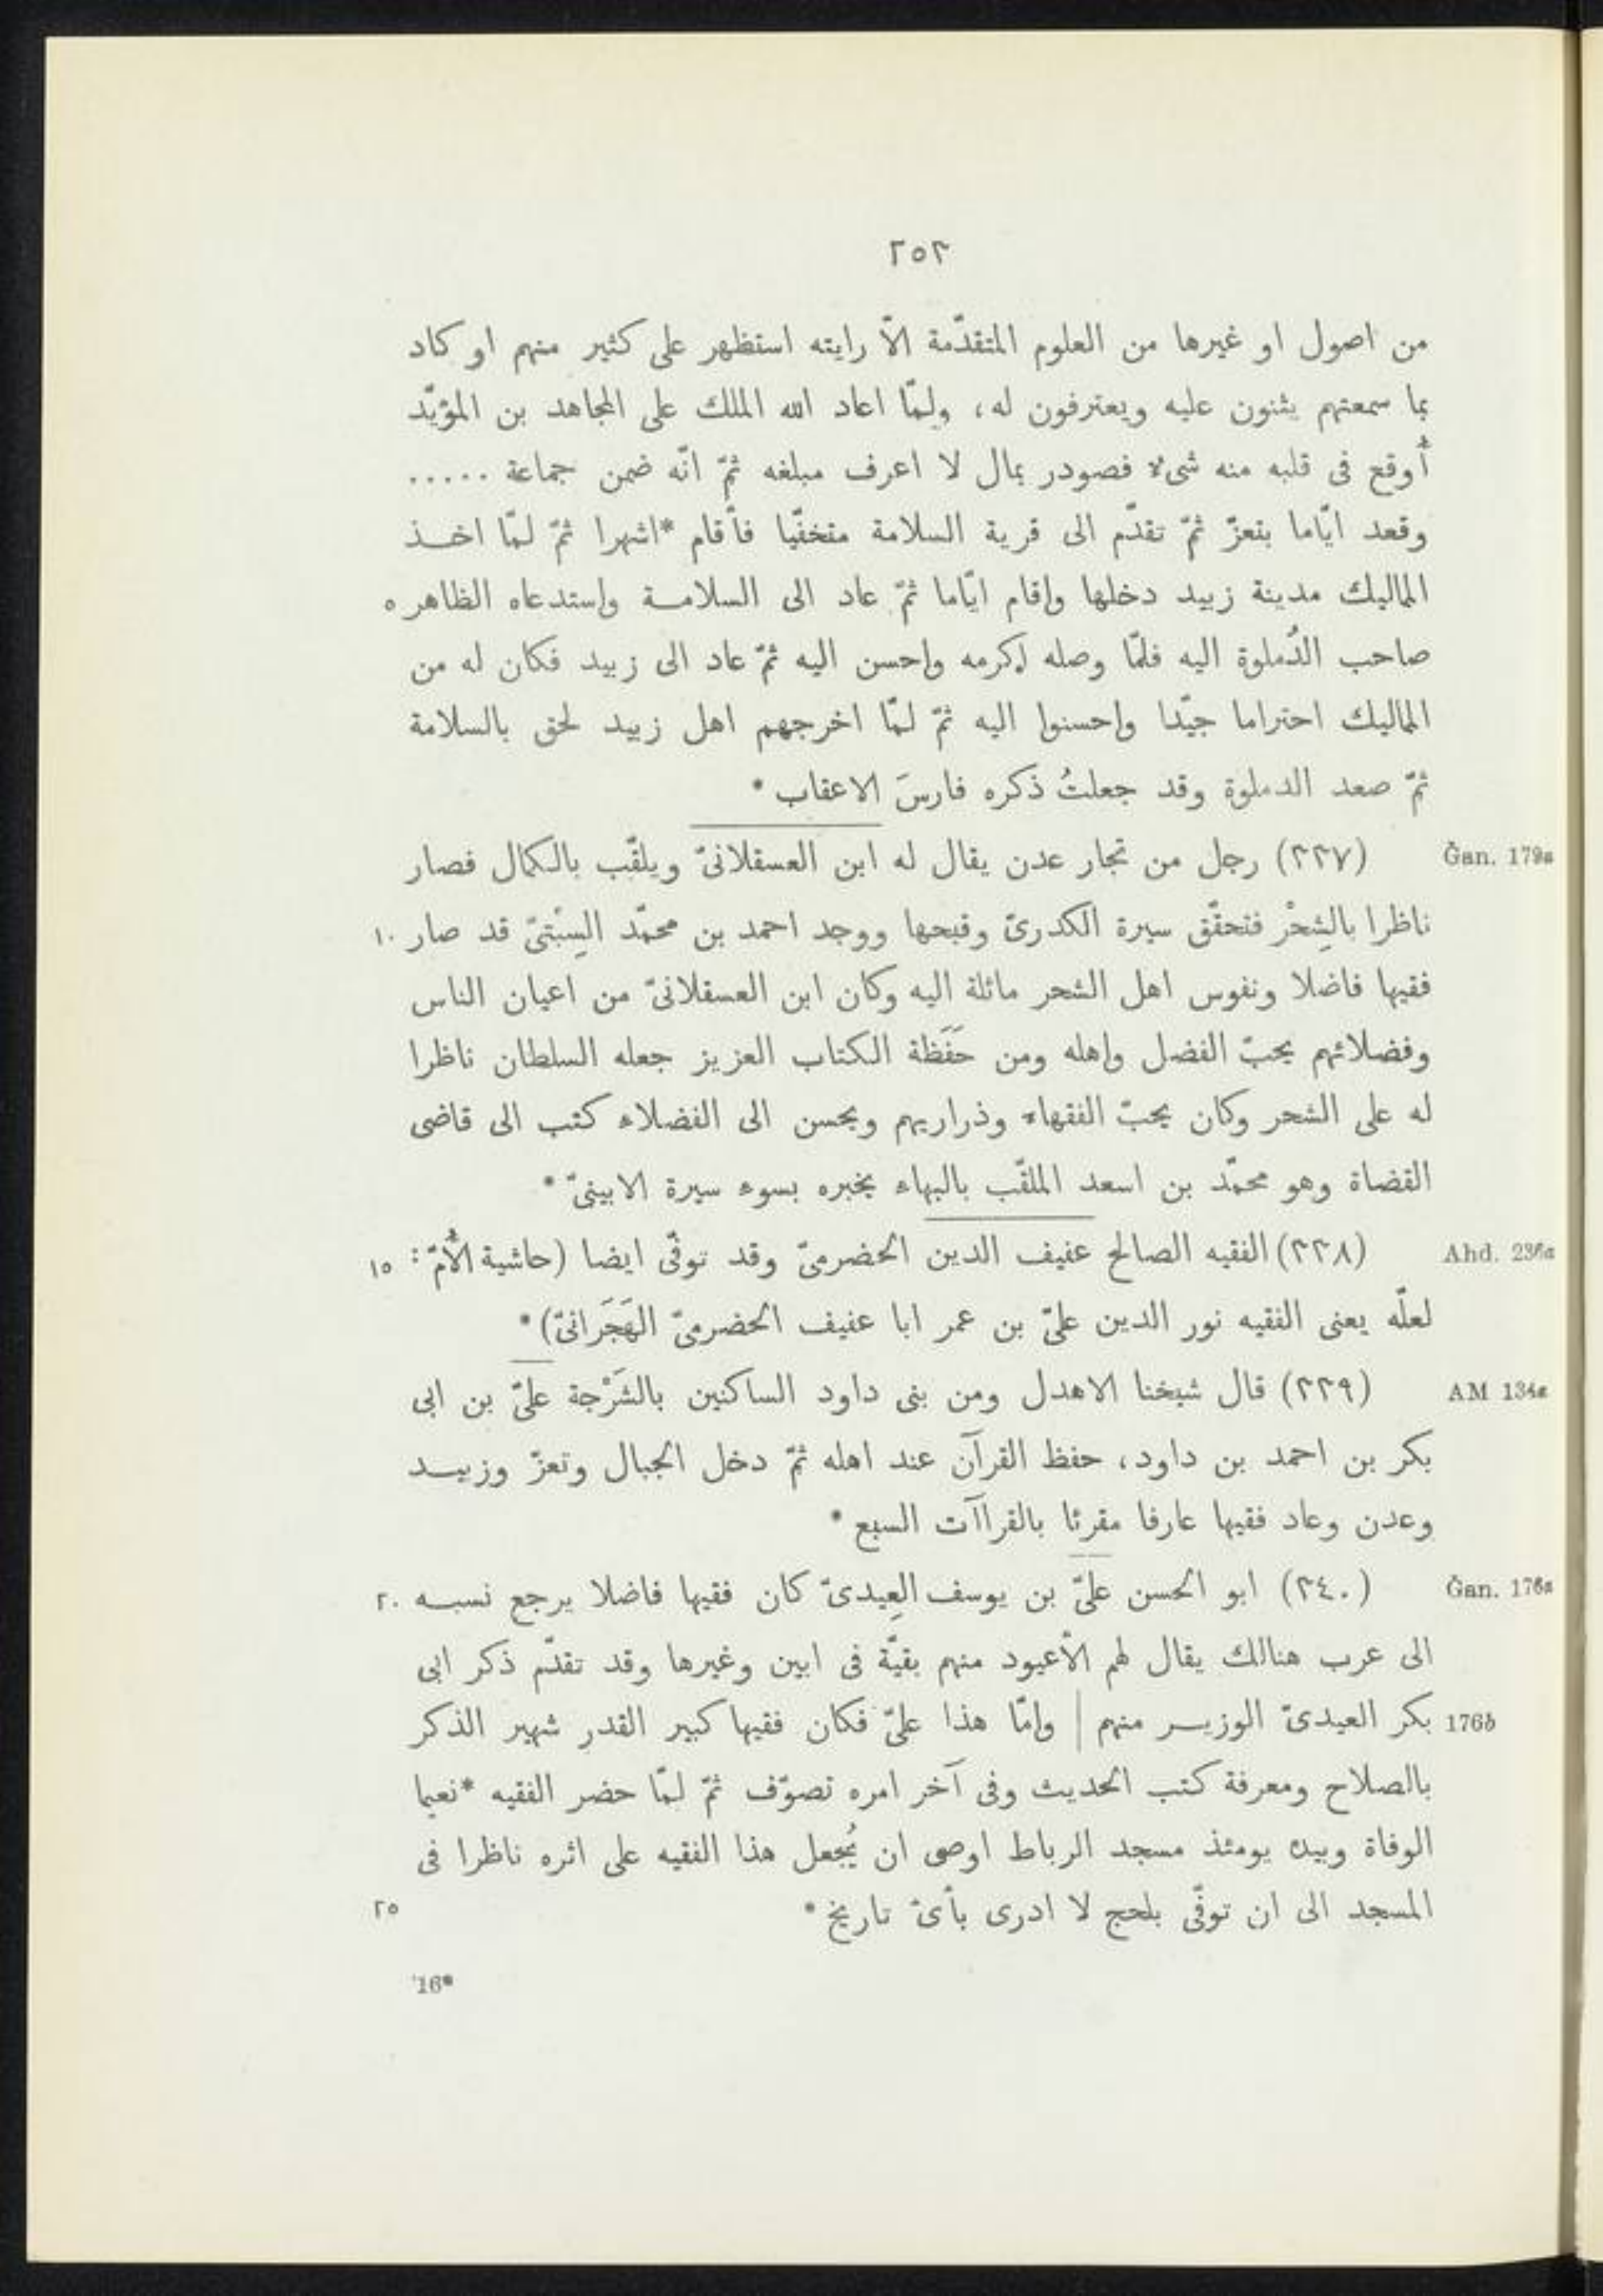 ٢٥٣
من اصول او غيرها من العلوم المتقدّمة الّا رايته استظهر على كثير منهم او كاد
بما سمعتهم يثنون عليه ويعترفون له، ولمّا اعاد الله الملك على المجاهد بن المؤيّد
أُوقع فى قلبه منه شىء فصودر بمال لا اعرف مبلغه ثمّ انّه ضمن جماعة .....
وقعد ايّاما بتعزّ ثمّ تقدّم الى قرية السلامة متخفّيا فأقام *اشهرا ثمّ لمّا اخذ
المماليك مدينة زبيد دخلها واقام ايّاما ثمّ عاد الى السلامة واستدعاه الظاهر ٥
صاحب الدُملوة اليه فلمّا وصله اكرمه واحسن اليه ثمّ عاد الى زبيد فكان له من
المماليك احتراما جيّدا واحسنوا اليه ثمّ لمّا اخرجهم اهل زبيد لحق بالسلامة
ثمّ صعد الدملوة وقد جعلتُ ذكره فارسَ الاعقاب *
Ǧan. 179a (٢٣٧) رجل من تجار عدن يقال له ابن العسقلانىّ ويلقّب بالكمال فصار
ناظرا بالشِحْر فتحقّق سيرة الكدرىّ وقبحها ووجد احمد بن محمّد السِبْتىّ قد صار ١٠
فقيها فاضلا ونفوس اهل الشحر مائلة اليه وكان ابن العسقلانىّ من اعيان الناس
وفضلائهم يحبّ الفضل واهله ومن حَفَظة الكتاب العزيز جعله السلطان ناظرا
له على الشحر وكان يحبّ الفقهاء وذراريهم ويحسن الى الفضلاء كتب الى قاضى
القضاة وهو محمّد بن اسعد الملقّب بالبهاء يخبره بسوء سيرة الابينىّ *
Ahd. 236a (٢٣٨) الفقيه الصالح عفيف الدين الحضرمىّ وقد توفّى ايضا (حاشية الأُمّ: ١٥
لعلّه يعنى الفقيه نور الدين علىّ بن عمر ابا عفيف الحضرمىّ الهَجَرانىّ) *
AM 134a (٢٣٩) قال شيخنا الاهدل ومن بنى داود الساكنين بالشَرْجة علىّ بن ابى
بكر بن احمد بن داود، حفظ القرآن عند اهله ثمّ دخل الجبال وتعزّ وزبيد
وعدن وعاد فقيها عارفا مقرئا بالقراآت السبع *
Ǧan. 176a (٢٤٠) ابو الحسن علىّ بن يوسف العِيدىّ كان فقيها فاضلا يرجع نسبه ٢٠
الى عرب هنالك يقال لهم الأعيود منهم بقيّة فى ابين وغيرها وقد تقدّم ذكر ابى
176b بكر العيدىّ الوزير منهم | وامّا هذا علىّ فكان فقيها كبير القدر شهير الذكر
بالصلاح ومعرفة كتب الحديث وفى آخر امره تصوّف ثمّ لمّا حضر الفقيه *نعيما
الوفاة وبيده يومئذ مسجد الرباط اوصى ان يُجعل هذا الفقيه على اثره ناظرا فى
المسجد الى ان توفّى بلحج لا ادرى بأىّ تاريخ * ٢٥
16*